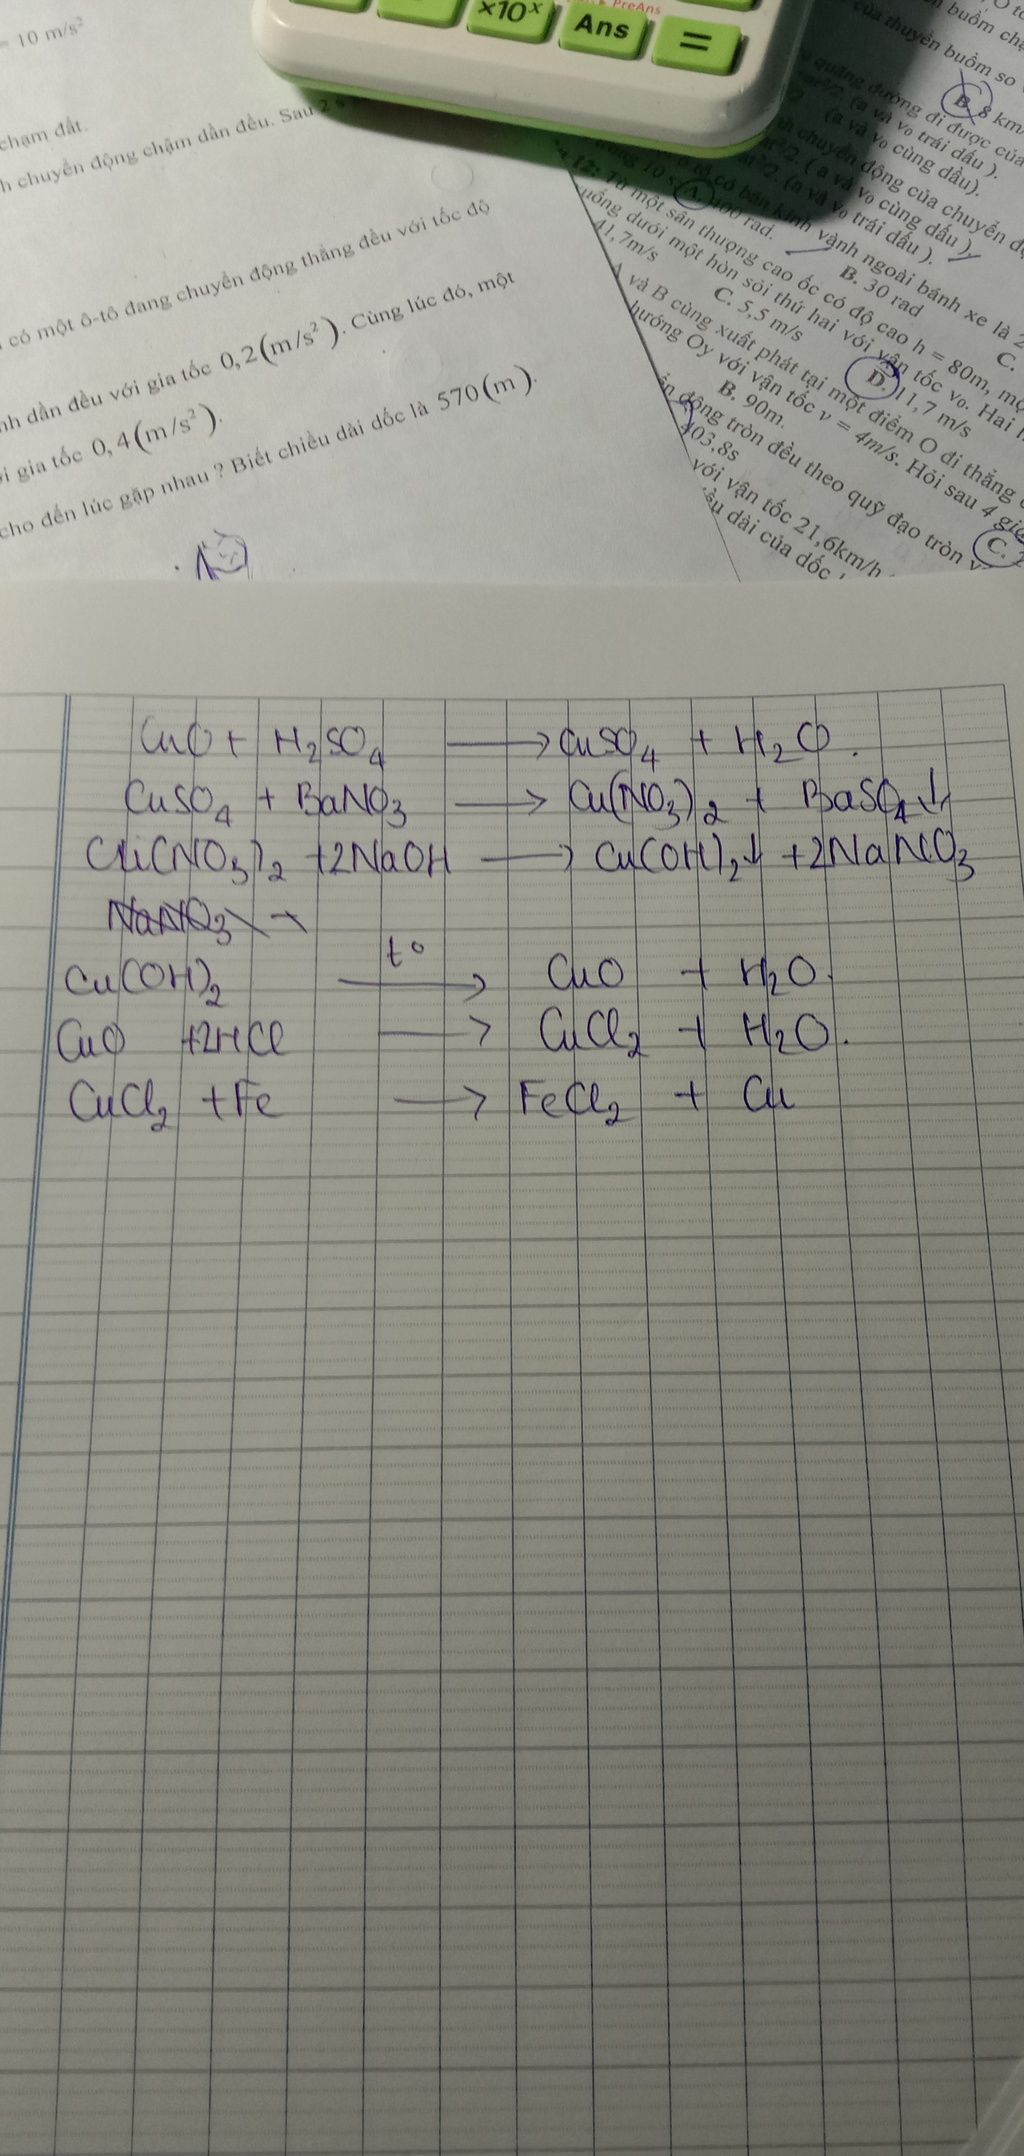 ×10ˣ
PreAns
Ans
=
= 10 m/s²
chạm đất.
h chuyển động chậm dần đều. Sau 2 s
có một ô-tô đang chuyển động thẳng đều với tốc độ
nh dần đều với gia tốc 0,2(m/s²). Cùng lúc đó, một
i gia tốc 0,4(m/s²).
cho đến lúc gặp nhau ? Biết chiều dài dốc là 570(m).
n buồm ch
của thuyền buồm so
B. 8 km
quãng đường đi được của
(a và v₀ trái dấu ).
(a và v₀ cùng dấu).
h chuyển động của chuyển đ
t²/2. ( a và v₀ cùng dấu ).
at²/2. (a và v₀ trái dấu ).
có bán kính vành ngoài bánh xe là 2
A. 100 rad.
B. 30 rad
C.
12: Từ một sân thượng cao ốc có độ cao h = 80m, mộ
uống dưới một hòn sỏi thứ hai với vận tốc v₀. Hai h
41,7m/s
C. 5,5 m/s
D. 11,7 m/s
A và B cùng xuất phát tại một điểm O đi thẳng
hướng Oy với vận tốc v = 4m/s. Hỏi sau 4 giâ
B. 90m.
C.
ển động tròn đều theo quỹ đạo tròn v
403,8s
với vận tốc 21,6km/h
ều dài của dốc
CuO + H₂SO₄ ⟶ CuSO₄ + H₂O.
CuSO₄ + BaNO₃ ⟶ Cu(NO₃)₂ + BaSO₄↓
Cu(NO₃)₂ +2NaOH ⟶ Cu(OH)₂↓ +2NaNO₃
NaNO₃ +
Cu(OH)₂ t° ⟶ CuO + H₂O.
CuO +2HCl ⟶ CuCl₂ + H₂O.
CuCl₂ +Fe ⟶ FeCl₂ + Cu